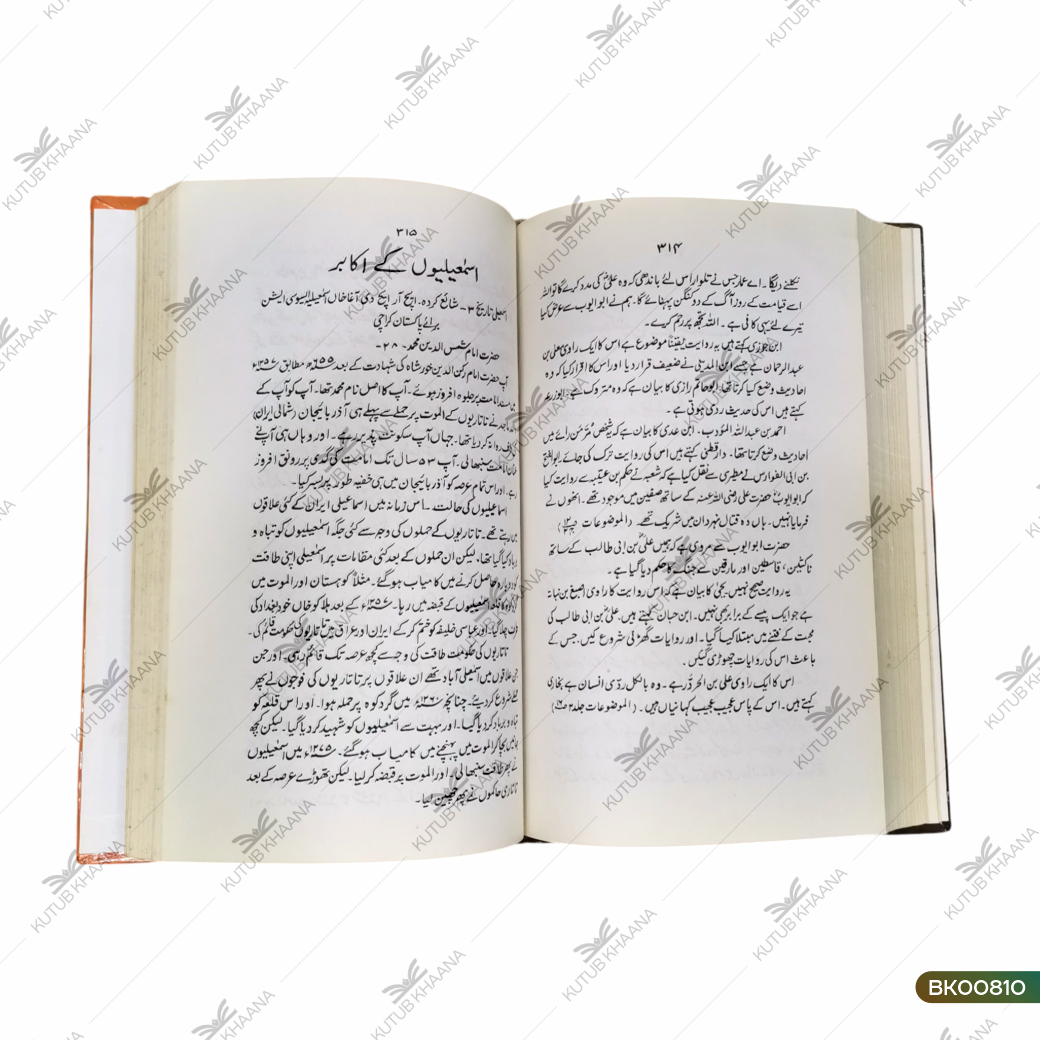 ۳۱۴
نکلنے دیگا۔ اے عمار جس نے تلوار اس لئے باندھی کہ وہ علیؓ کی مدد کرے گا تو اللہ
اسے قیامت کے روز آگ کے دو کنگن پہنائے گا۔ ہم نے ابو ایوب سے عرض کیا
تیرے لئے یہی کافی ہے۔ اللہ تجھ پر رحم کرے۔
ابن جوزی کہتے ہیں یہ روایت یقیناً موضوع ہے اس کا ایک راوی معلی بن
عبدالرحمان ہے جسے ابن المدینی نے ضعیف قرار دیا اور اس کا اقرار کیا کہ وہ
احادیث وضع کیا کرتا تھا۔ ابو حاتم رازی کا بیان ہے کہ وہ متروک ہے۔ ابو زرعہ
کہتے ہیں اس کی حدیث ردی ہوتی ہے۔
احمد بن عبداللہ المؤدب۔ ابن عدی کا بیان ہے کہ یہ شخص سُرَّ مَن رائے میں
احادیث وضع کرتا تھا۔ دار قطنی کہتے ہیں اس کی روایت ترک کی جائے۔ ابو الفتح
بن ابی الفوارس نے مطیری سے نقل کیا ہے کہ شعبہ نے حکم بن عتیبہ سے روایت کیا
کہ ابو ایوبؓ حضرت علی رضی اللہ عنہ کے ساتھ صفین میں موجود تھے۔ انھوں نے
فرمایا نہیں۔ ہاں وہ قتال نہروان میں شریک تھے۔ (الموضوعات
حضرت ابو ایوب سے مروی ہے کہ ہمیں علیؓ بن ابی طالب کے ساتھ
ناکثین، قاسطین اور مارقین سے جنگ کا حکم دیا گیا ہے۔
یہ روایت صحیح نہیں۔ یحییٰ کا بیان ہے کہ اس روایت کا راوی اصبغ بن نباتہ
ہے جو ایک پیسے کے برابر بھی نہیں۔ ابن حبان کہتے ہیں۔ علیؓ بن ابی طالب کی
محبت کے فتنے میں مبتلا کیا گیا۔ اور روایات گھڑنی شروع کیں۔ جس کے
باعث اس کی روایات چھوڑی گئیں۔
اس کا ایک راوی علی بن الحزوّر ہے۔ وہ بالکل ردّی انسان ہے بخاری
کہتے ہیں۔ اس کے پاس عجیب عجیب کہانیاں ہیں۔ (الموضوعات جلد ۲
۳۱۵
اسمٰعیلیوں کے اکابر
اسمٰعیلی تاریخ ۳۔ شائع کردہ۔ ایچ آر ایچ دی آغا خاں اسمٰعیلیہ ایسوسی ایشن
برائے پاکستان کراچی
حضرت امام شمس الدین محمد۔ ۲۸۔
آپ حضرت امام رکن الدین خور شاہ کی شہادت کے بعد ۶۵۵ھ مطابق ۱۲۵۷ء
میں مسند امامت پر جلوہ افروز ہوئے۔ آپ کا اصل نام محمد تھا۔ آپ کو آپ کے
والد ماجد نے تاتاریوں کے الموت پر حملے سے پہلے ہی آذر بائیجان (شمالی ایران)
کی طرف روانہ کر دیا تھا۔ جہاں آپ سکونت پذیر رہے۔ اور وہاں ہی آپ نے
امامت سنبھالی۔ آپ ۵۳ سال تک امامت کی گدی پر رونق افروز
رہے۔ اور اس تمام عرصہ کو آذر بائیجان میں ہی خفیہ طور پر بسر کیا۔
اسماعیلیوں کی حالت۔ اس زمانہ میں اسماعیلی ایران کے کئی علاقوں
میں رہتے تھے۔ تاتاریوں کے حملوں کی وجہ سے کئی جگہ اسمٰعیلیوں کو تباہ و
برباد کیا گیا تھا، لیکن ان حملوں کے بعد کئی مقامات پر اسمٰعیلی اپنی طاقت
دوبارہ حاصل کرنے میں کامیاب ہو گئے۔ مثلاً کوہستان اور الموت میں
گردکوہ کا قلعہ اسمٰعیلیوں کے قبضہ میں رہا۔ ۱۲۵۶ء کے بعد ہلاکو خاں خود بغداد کی
طرف چلا گیا۔ اور عباسی خلیفہ کو ختم کر کے ایران اور عراق میں تاتاریوں کی حکومت قائم کی۔
تاتاریوں کی حکومت طاقت کی وجہ سے کچھ عرصہ تک قائم رہی۔ اور جن
جن علاقوں میں اسمٰعیلی آباد تھے ان علاقوں پر تاتاریوں کی فوجوں نے پھر
حملے شروع کر دیئے۔ چنانچہ ۱۲۷۰ء میں گردکوہ پر حملہ ہوا۔ اور اس قلعہ کو
تباہ و برباد کر دیا گیا۔ اور بہت سے اسمٰعیلیوں کو شہید کر دیا گیا۔ لیکن کچھ
جانیں بچا کر الموت میں پہنچنے میں کامیاب ہو گئے۔ ۱۲۷۵ء میں اسمٰعیلیوں
نے پھر طاقت سنبھالی۔ اور الموت پر قبضہ کر لیا۔ لیکن تھوڑے عرصہ کے بعد
تاتاری حاکموں نے پھر چھین لیا۔
KUTUB KHAANA
BK00810